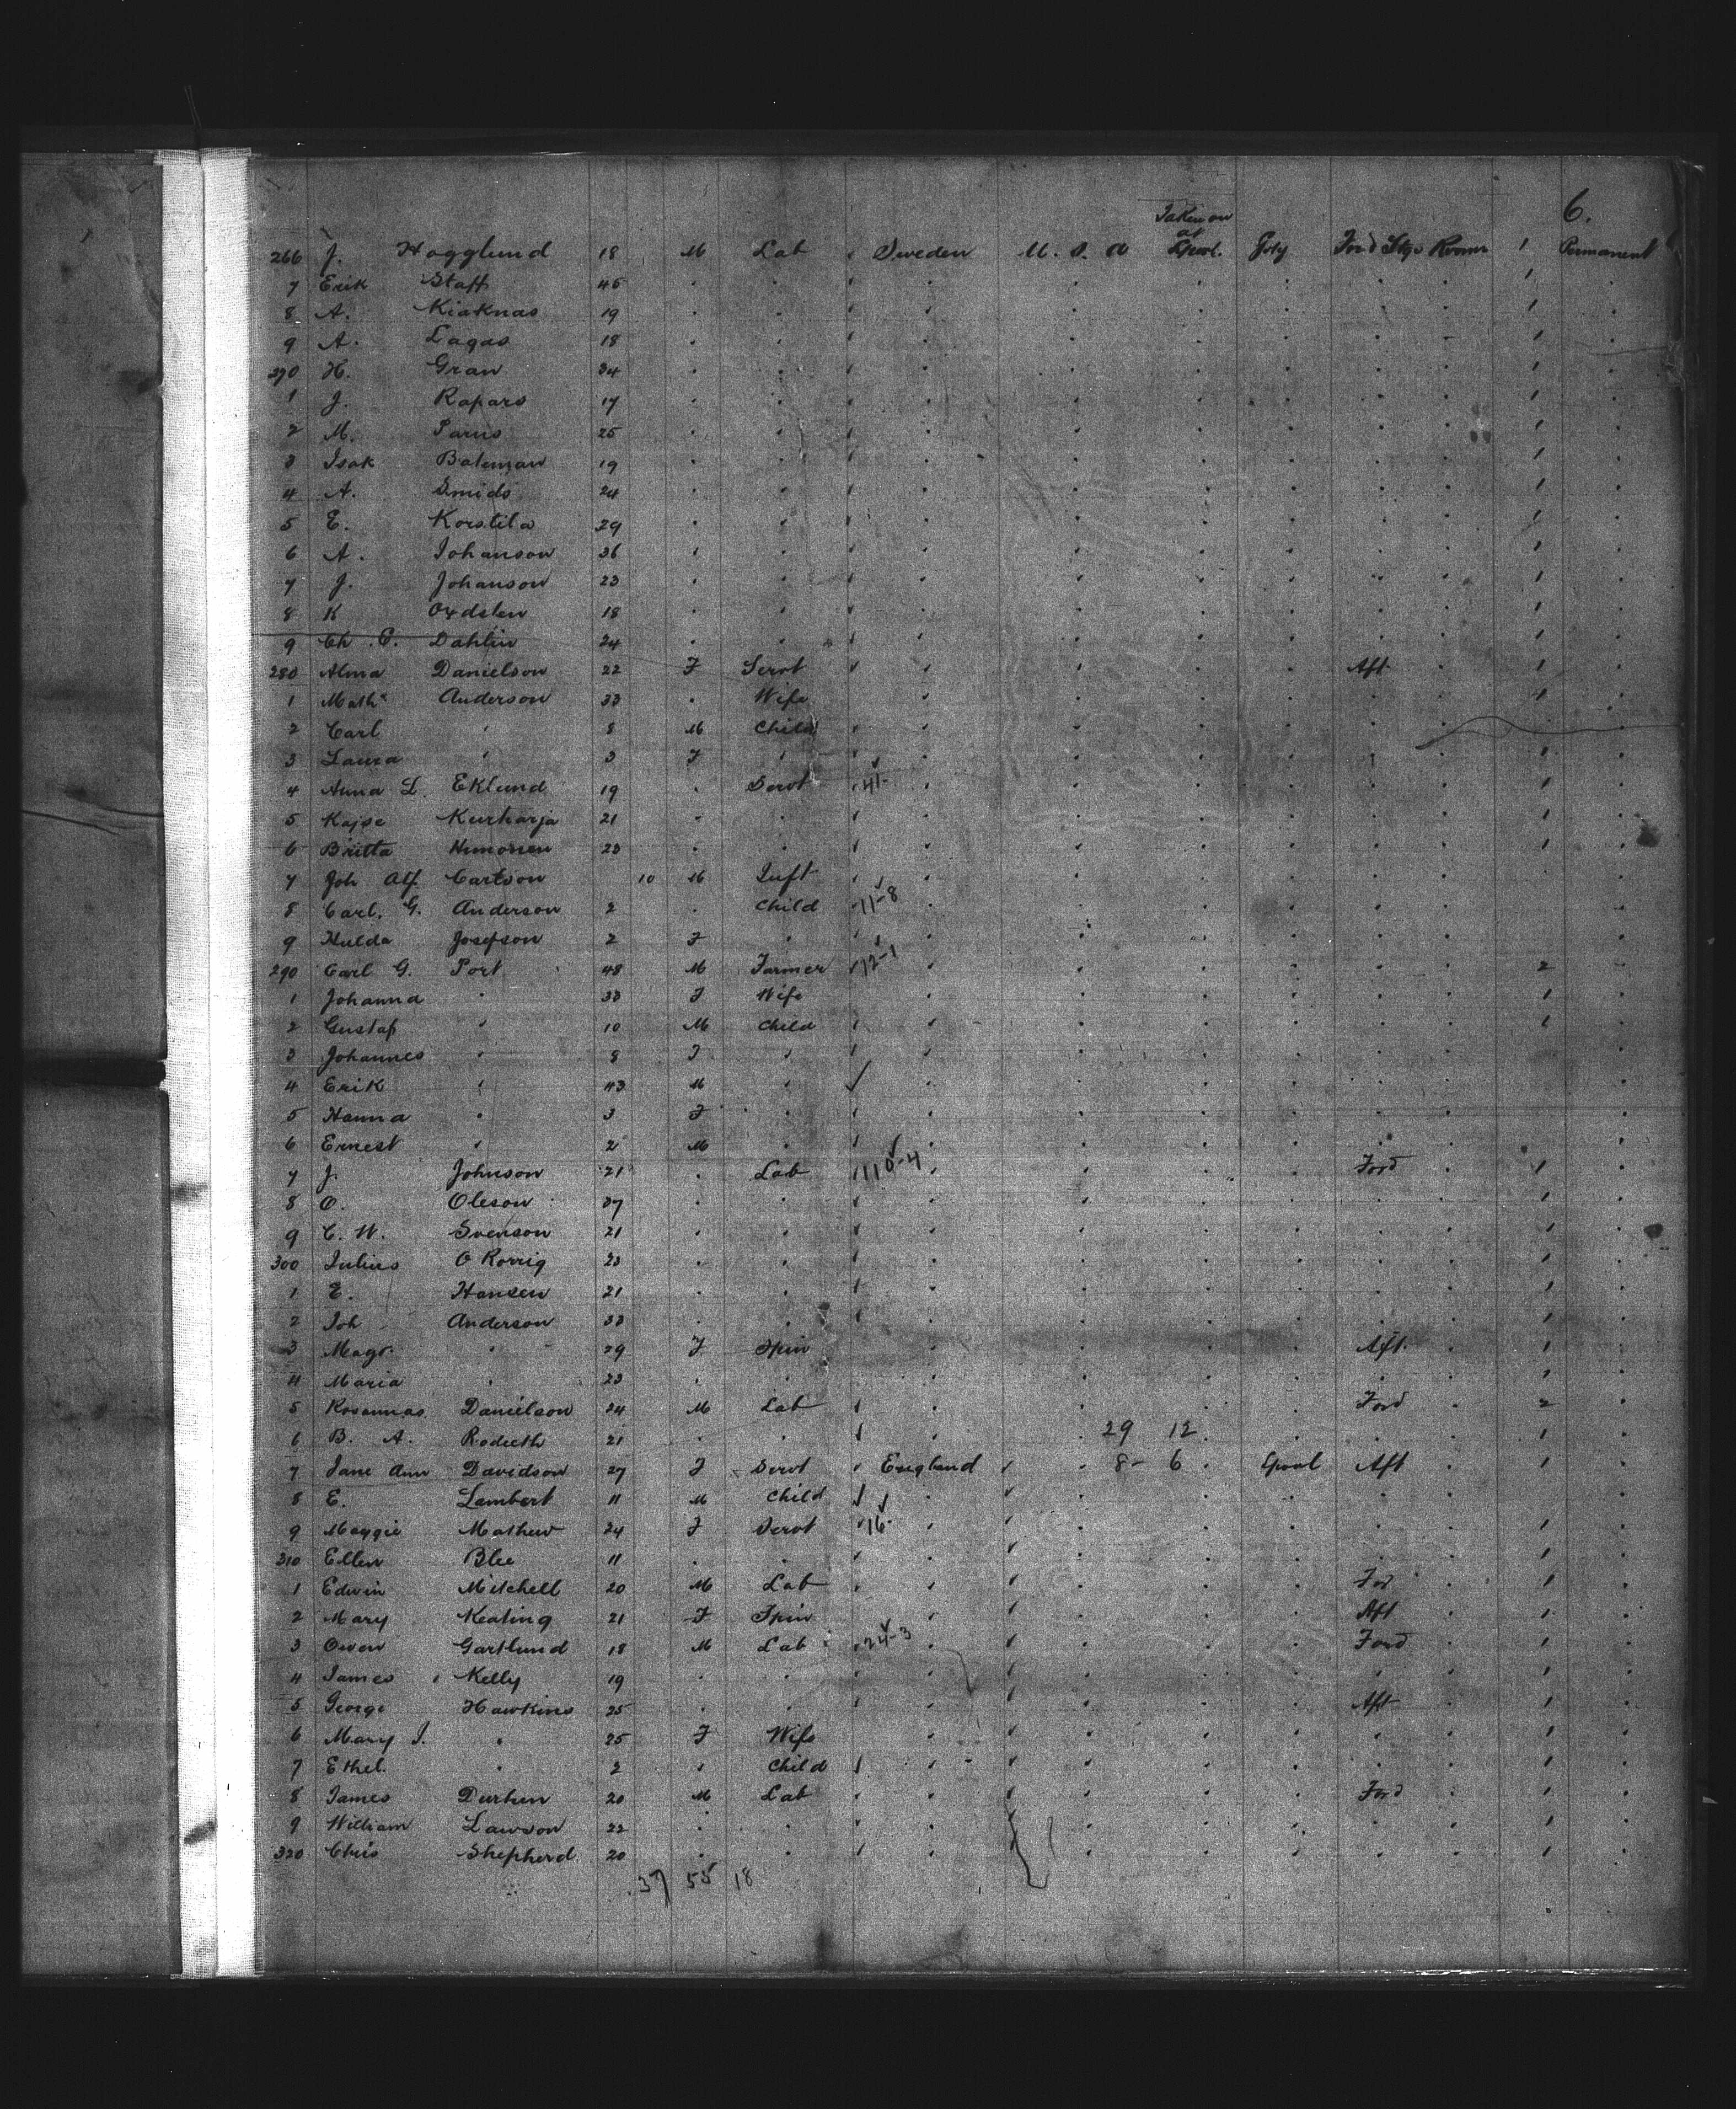 6.
Taken on
at
266 J. Hagglund 18 M Lab Sweden U. S. A Lpool. Gotg Ford Stge Rooms 1 Permanent
7 Erik Staff 45 1
8 A. Kiaknas 19 1
9 A. Lagas 18 1
270 H. Gran 34 1
1 J. Rapars 17 1
2 M. Parus 25 1
3 Isak Bateman 19 1
4 A. Smids 24 1
5 E. Korstila 29 1
6 A. Johanson 36 1
7 J. Johanson 23 1
8 K 18 1
9 Ch. E. Dahlin 24 1
280 Alma Danielson 22 F Servt Aft 1
1 Matha Anderson 33 " Wife 1
2 Carl " 8 M Child
3 Laura " 3 F " 1
4 Anna L. Eklund 19 " Servt 41- 1
5 Kajse Kurharja 21 1
6 Britta 23 1
7 Joh Alf. Carlson 10 M Inft
8 Carl. G. Anderson 2 " Child 11-8
9 Hulda Josefson 2 F "
290 Carl G. Port 48 M Farmer 12-1 2
1 Johanna " 38 F Wife 1
2 Gustaf " 10 M Child 1
3 Johannes " 8 F "
4 Erik " M "
5 Hanna " 3 F "
6 Ernest " 2 M "
7 J. Johnson 21 " Lab 110-4 Ford 1
8 O. Oleson 37 1
9 C. W. Svenson 21 1
300 Julius O Korrig 23 1
1 E. Hansen 21 1
2 Joh Anderson 33 1
3 Magr. " 29 F Spin Aft. 1
4 Maria " 23 1
5 Danielson 24 M Lab Ford 2
6 B. A. 21 29 12 1
7 Jane Ann Davidson 27 F Servt England 8- 6 Lpool Aft 1
8 E. Lambert 11 M Child
9 Maggie Mathew 24 F Servt 16- 1
310 Ellen Blee 11 1
1 Edwin Mitchell 20 M Lab For 1
2 Mary Keating 21 F Spin Aft 1
3 Owen Gartlund 18 M Lab 24-3 Ford 1
4 James Kelly 19 1
5 George Hawkins 25 Aft 1
6 Mary J. " 25 F Wife 1
7 Ethel. " 2 " Child 1
8 James Durken 20 M Lab Ford 1
9 William Lawson 22 1
320 Chris Shepherd. 20 1
37 55 18